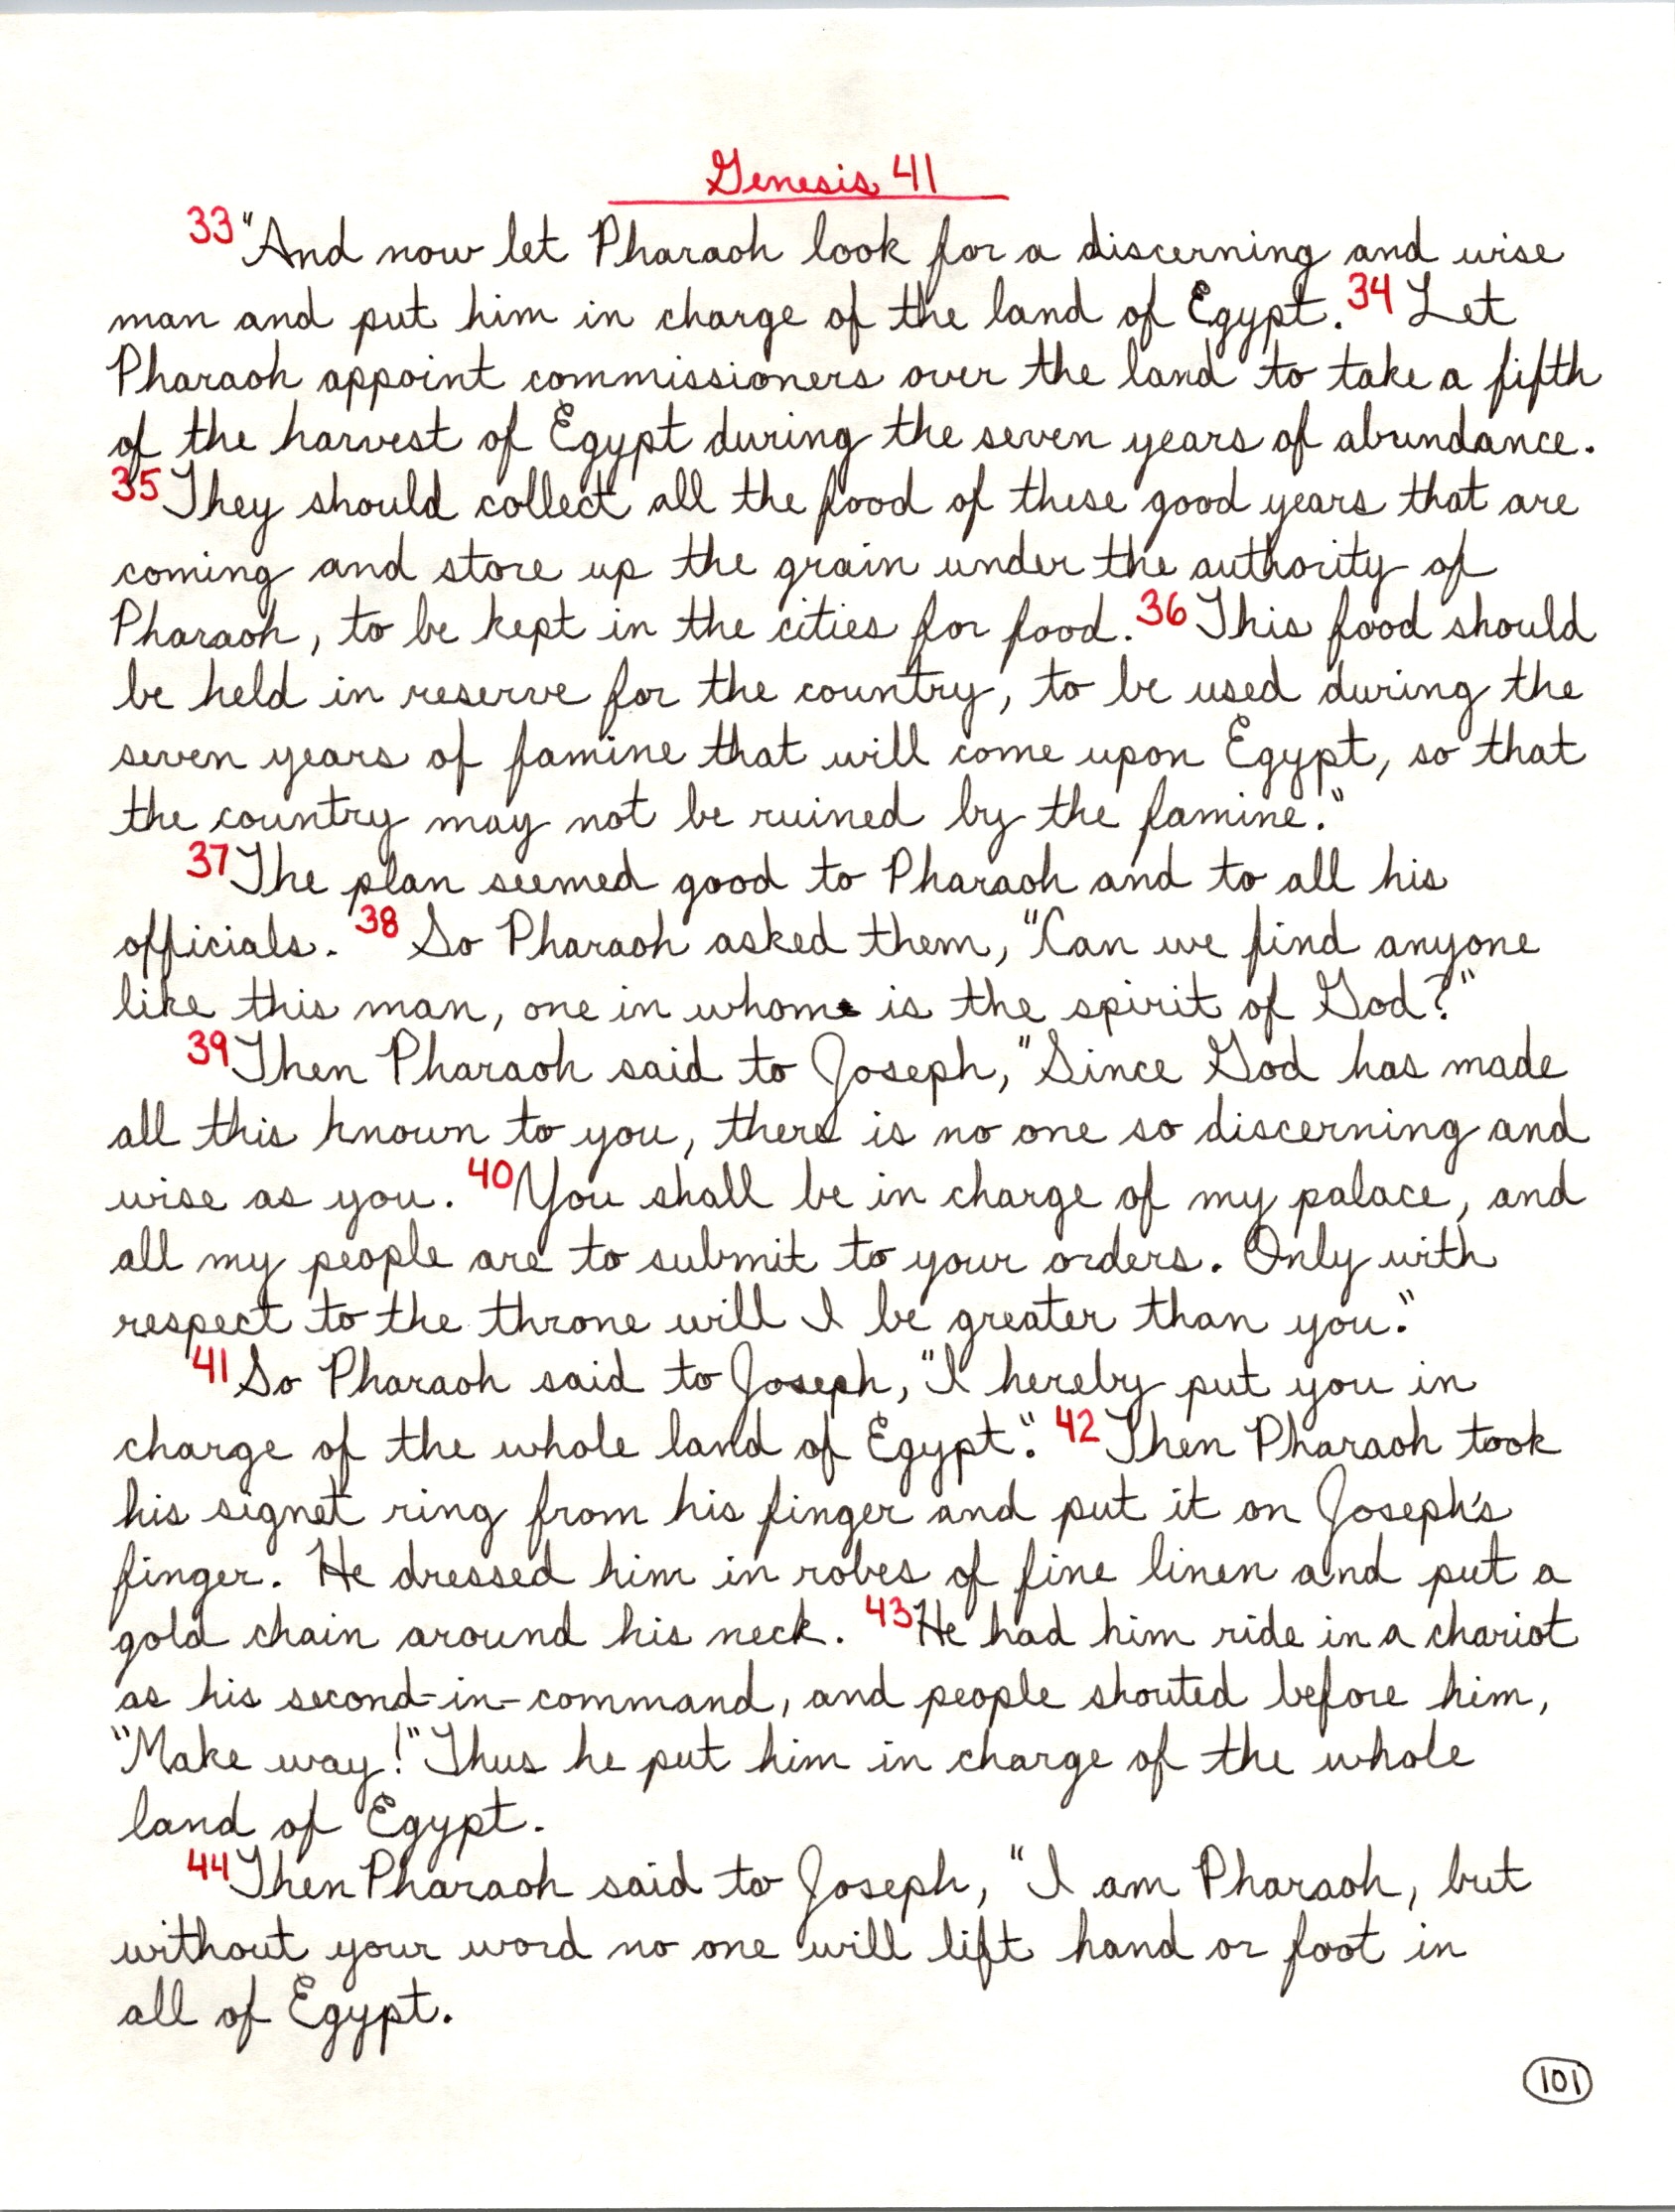 Genesis 41
33 "And now let Pharaoh look for a discerning and wise
man and put him in charge of the land of Egypt. 34 Let
Pharaoh appoint commissioners over the land to take a fifth
of the harvest of Egypt during the seven years of abundance.
35 They should collect all the food of these good years that are
coming and store up the grain under the authority of
Pharaoh, to be kept in the cities for food. 36 This food should
be held in reserve for the country, to be used during the
seven years of famine that will come upon Egypt, so that
the country may not be ruined by the famine."
37 The plan seemed good to Pharaoh and to all his
officials. 38 So Pharaoh asked them, "Can we find anyone
like this man, one in whom is the spirit of God?"
39 Then Pharaoh said to Joseph, "Since God has made
all this known to you, there is no one so discerning and
wise as you. 40 You shall be in charge of my palace, and
all my people are to submit to your orders. Only with
respect to the throne will I be greater than you."
41 So Pharaoh said to Joseph, "I hereby put you in
charge of the whole land of Egypt." 42 Then Pharaoh took
his signet ring from his finger and put it on Joseph's
finger. He dressed him in robes of fine linen and put a
gold chain around his neck. 43 He had him ride in a chariot
as his second-in-command, and people shouted before him,
"Make way!" Thus he put him in charge of the whole
land of Egypt.
44 Then Pharaoh said to Joseph, "I am Pharaoh, but
without your word no one will lift hand or foot in
all of Egypt.
101